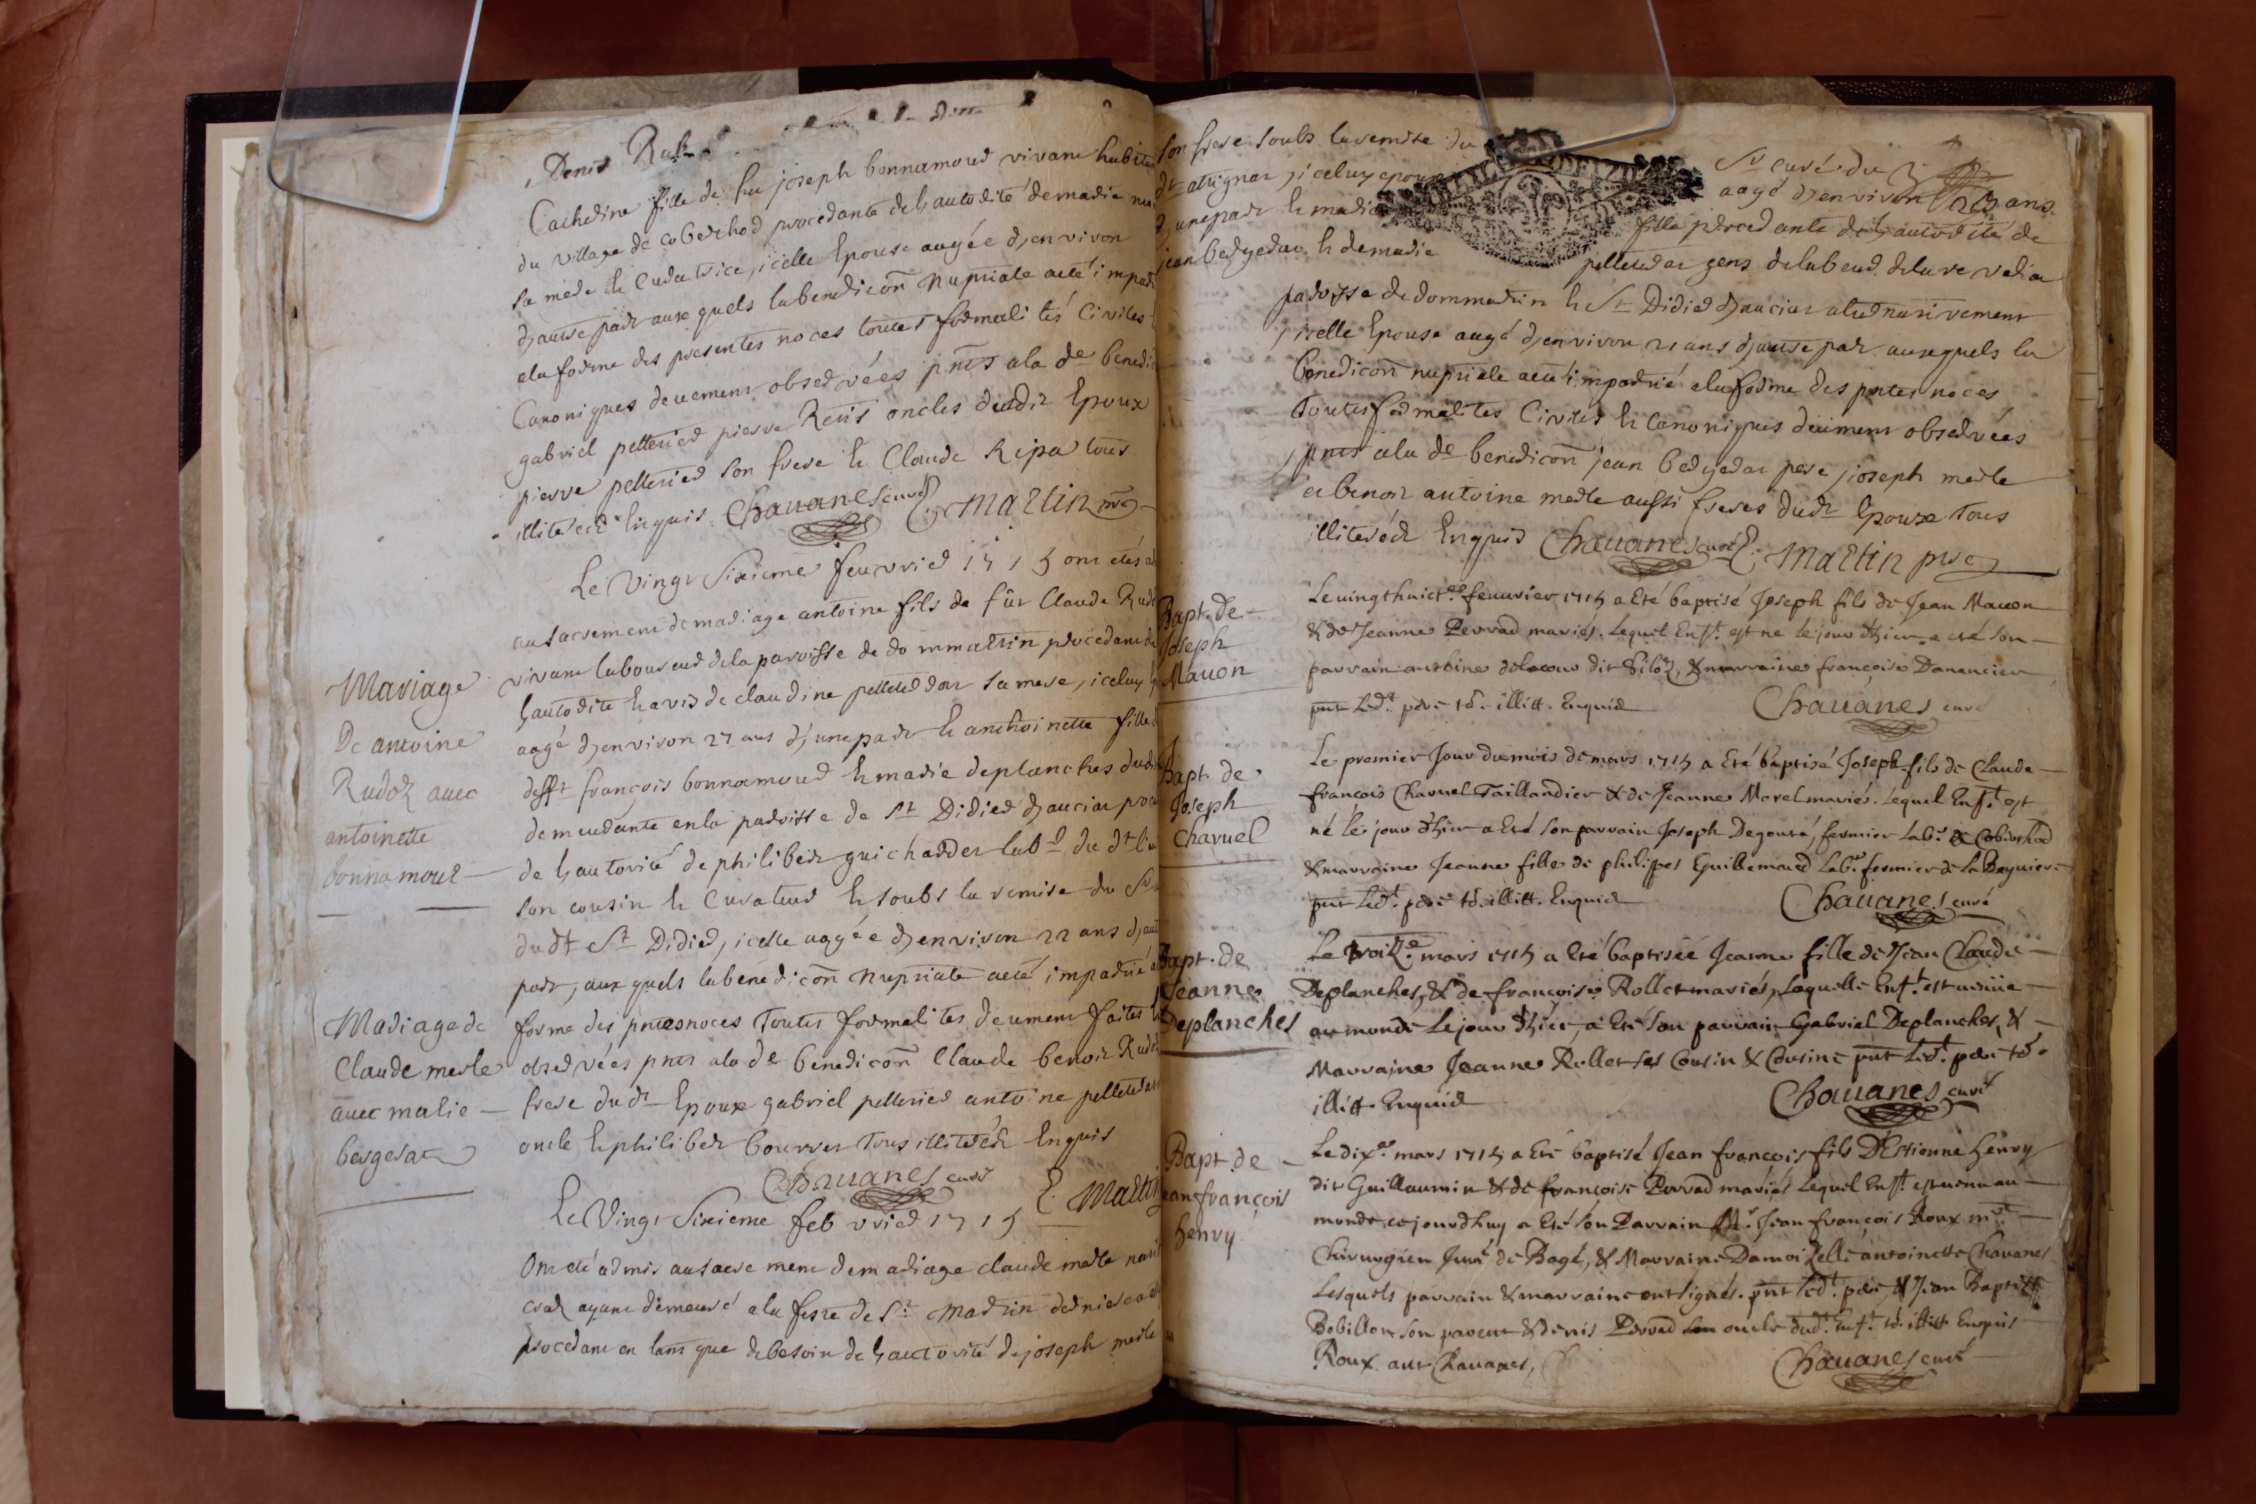 Denis
Catherine fille de feu joseph bonnamour vivant habita
du village de coberthod procedante de l'autorité de marie
sa mere et curatrice, icelle Epouse aagée d'environ
d'autre part aux quels la benedicōn nuptiale a eté impar
a la forme des presentes noces toutes formalités Civiles
Canoniques deuement observées pnts a la dᵉ benedi
gabriel pelletier pierre oncles dudit Epoux
pierre pelletier son frere et Claude Ripa tous
illiterés Enquis Chauanes curé Martin
Le vingt Sixieme feuvrier 1715 ont etés
au sacrement de mariage antoine fils de fût Claude Rud
vivant laboureur de la paroisse de dommartin procedant de
l'autorite et avis de claudine pelletier sa mere, iceluy
aagé d'environ 27 ans d'une part et anthoinette fille
defft françois bonnamour et marie deplanches
demeurante en la paroisse de St Didier d'auciat
de l'autorité de philibert guichardet labʳ du dt
son cousin et Curateur et soubs la remise du Sʳ
dudt St Didier, icelle aagée d'environ 22 ans d'aut
part, aux quels la benedicōn nuptiale a eté impartie
forme des pntes noces Toutes formalites deuement faites
observées pnts a la dᵉ benedicōn Claude benoit Rud
frere dudt Epoux gabriel pelletier antoine
oncle et philiber bourrer Tous illiterés Enquis
Chauanes curé Martin
Mariage
De antoine
Rudoz auec
antoinette
bonnamour
Le Vingt Sixieme febvrier 1715
Ont eté admis au sacrement de mariage claude merle
ayant demeuré a la feste de St martin dernier
procedant en tant que de besoin de l'autorité de joseph merle
Mariage de
Claude merle
auec marie
bergerat
son frere soubs la remise du Sʳ curé du
dt attignat, iceluy epoux aagé d'environ ans
d'une part et marie fille procedante de l'autorité de
jean bergerat et de marie gens de labeur de la
paroisse de dommartin et St Didier d'auciat alternativement
icelle Epouse aagé d'environ 21 ans d'autre part auxquels la
benedicōn nuptiale a eté impartie a la forme des pntes noces
Toutes formalites Civiles et Canoniques deüment observées
pnts a la dᵉ benedicōn jean bergerat pere, joseph merle
et benoit antoine merle aussi freres dudt Epoux Tous
illiterés Enquis Chauanes curé Martin
Bapt. de
Joseph
Mauon
Le vingthuict.ᵉ feuurier 1715 a Eté baptisé Joseph fils de Jean Mauon
& de Jeanne Perrad mariés. Lequel Enft. est ne le jour d'hier, a eté son
parrain anthoine delacour dit, & marraine françoise Danancier
pnt Ledt. pere té. illitt. Enquis Chauanes curé
Bapt. de
Joseph
Charuel
Le premier Jour du mois de mars 1715 a Eté baptisé Joseph fils de Claude
françois Charuel Taillandier & de Jeanne Morel mariés. Lequel Enft. est
né le jour d'hier a Eté son parrain Joseph Degouté, fermier Labʳ. a Coberthod
& marraine Jeanne fille de philippes Guillemaud Labʳ. fermier de la
pnt Ledt. pere té. illitt. Enquis Chauanes curé
Bapt. de
Jeanne
Deplanches
Le troizᵉ. mars 1715 a Eté baptisée Jeanne fille de Jean Claude
Deplanches, & de françoise Rollet mariés, Laquelle Enft. est venüe
au monde le jour d'hier, a Eté son parrain Gabriel Deplanches, &
Marraine Jeanne Rollet ses Cousin & Cousine pnt Ledt. pere té
illitt. Enquis Chauanes curé
Bapt. de
Jean françois
henry
Le dixᵉ. mars 1715 a Eté baptisé Jean françois fils D'Estienne henry
dit Guillaumin & de françoise Perrad mariés Lequel Enft. est venu au
monde cejourdhuy a Eté son Parrain Mʳ. Jean françois Roux mᵗʳᵉ
Chirurgien Juré de Bagé, & Marraine Damoizelle antoinette Chauanes
Lesquels parrain & marraine ont signés. pnt Ledt. pere & Jean Baptiste
Bobillon son parent & denis Perrad oncle dudt. Enft. té. illitt Enquis
Roux ant Chauanes, Chauanes curé